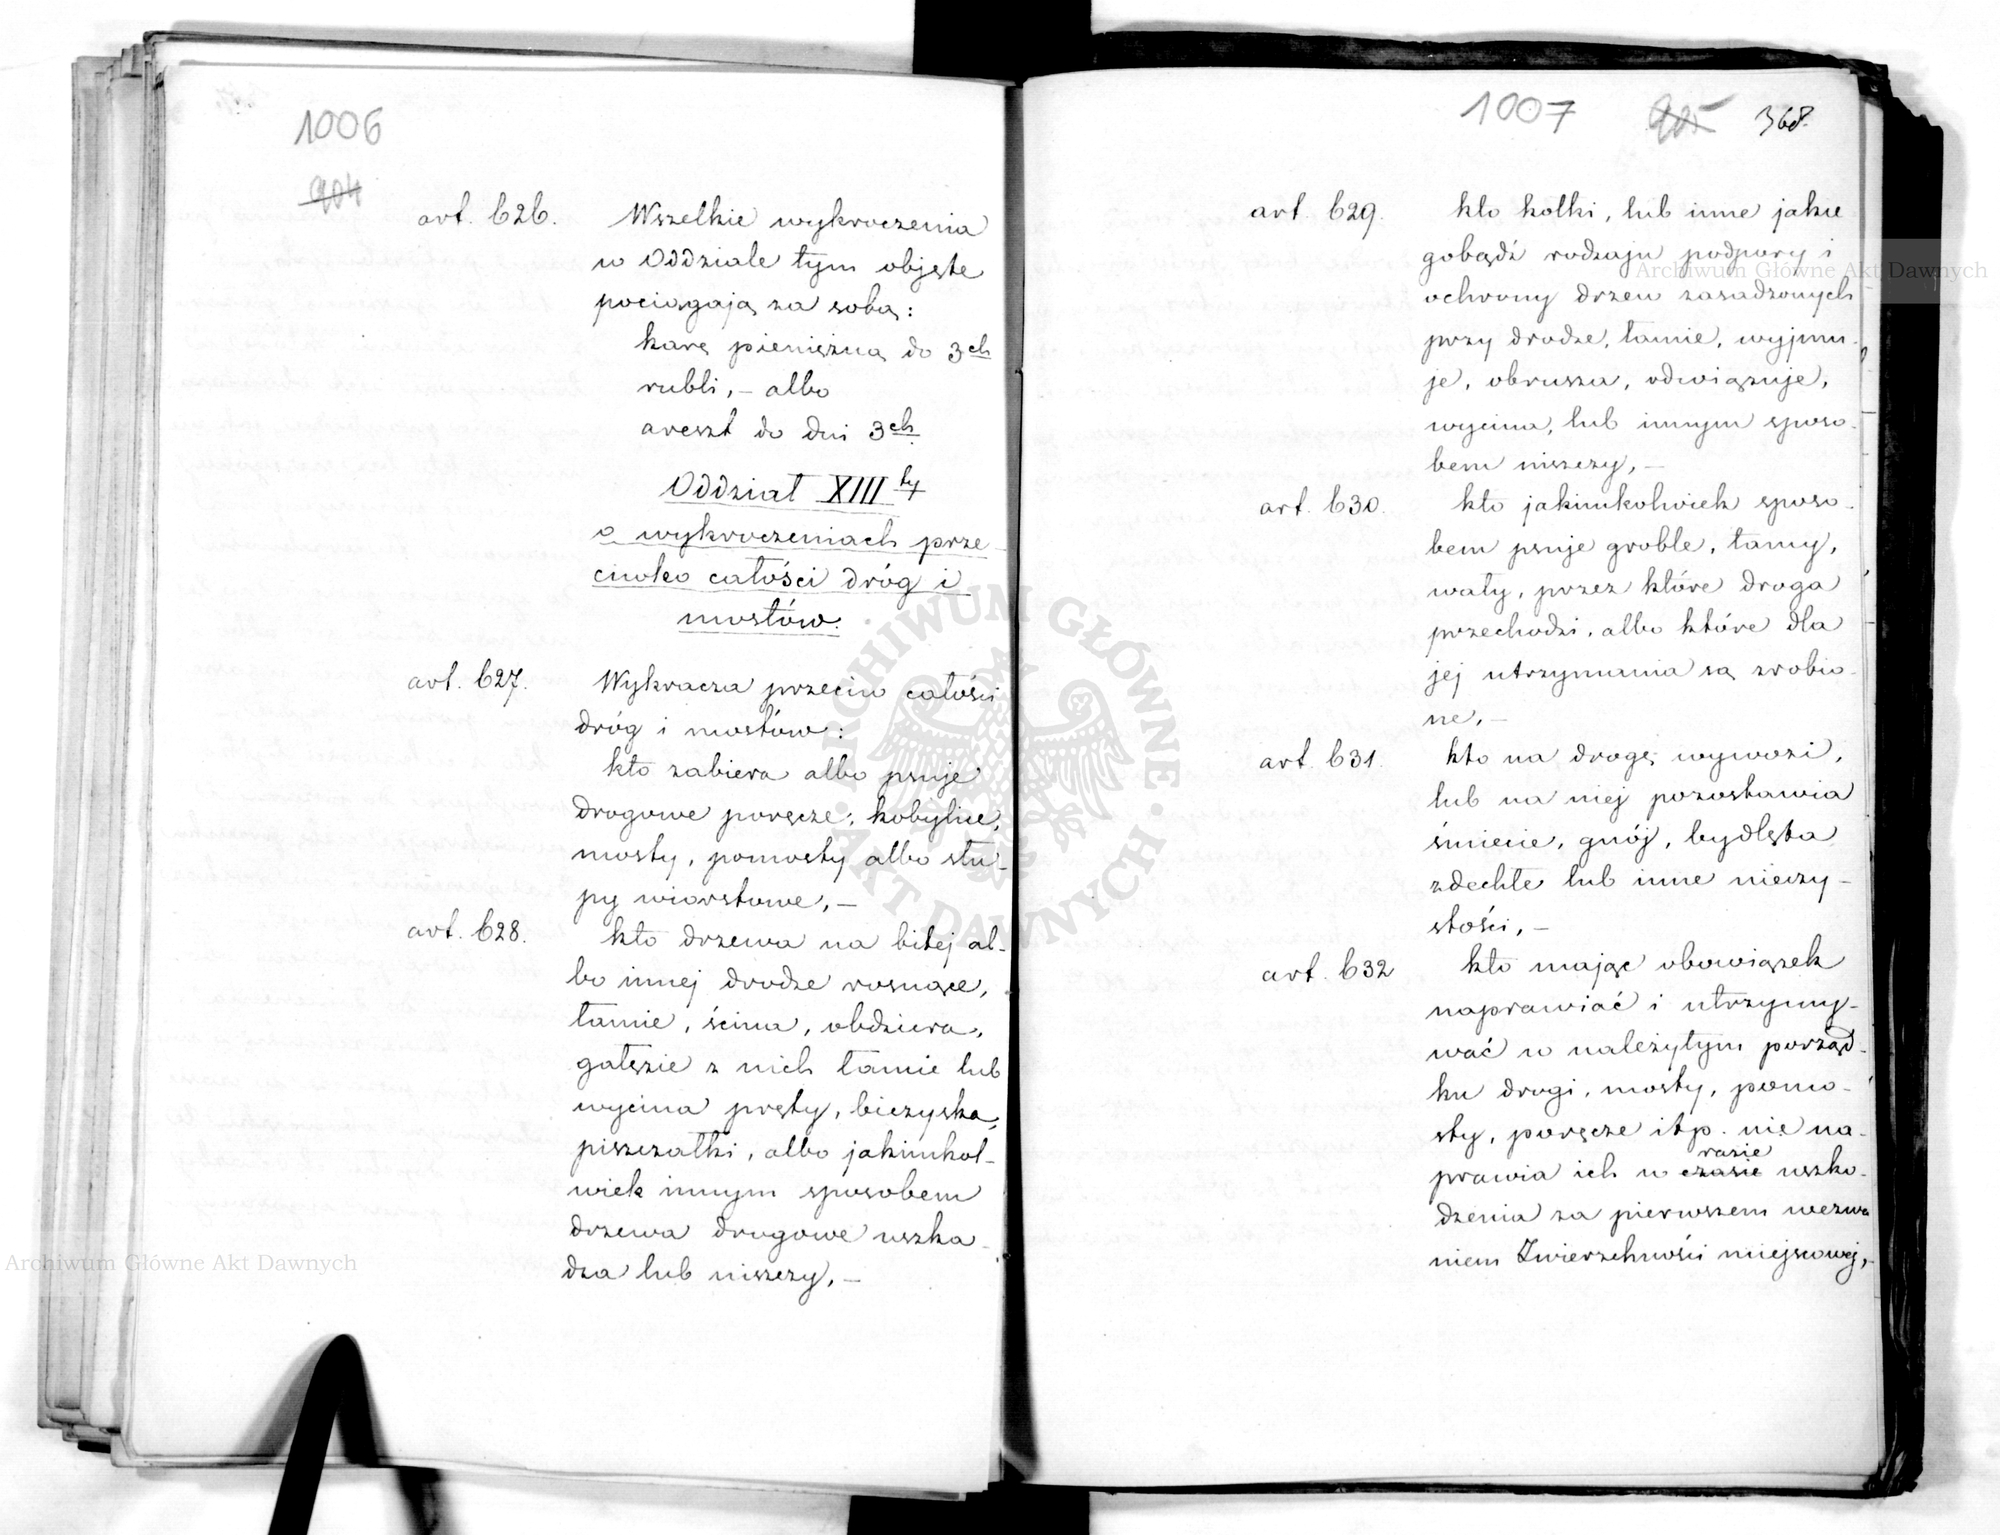 1006
904
art. 626. Wszelkie wykroczenia
w Oddziale tym objęte
pociągają za sobą:
karę pieniężną do 3ch
rubli, – albo
areszt do dni 3ch.
Oddział XIIIty
o wykroczeniach prze-
ciwko całości dróg i
mostów.
art. 627. Wykracza przeciw całości
dróg i mostów:
kto zabiera albo psuje
drogowe poręcze, kobylice,
mosty, pomosty albo słu-
py wiorstowe, –
art. 628. kto drzewa na bitej al-
bo innej drodze rosnące,
łamie, ścina, obdziera,
gałęzie z nich łamie lub
wycina pręty, biczyska,
piszczałki, albo jakimkol-
wiek innym sposobem
drzewa drogowe uszka-
dza lub niszczy, –
1007 905 368.
art. 629. kto kołki, lub inne jakie
gobądź rodzaju podpory i
ochrony drzew zasadzonych
przy drodze, łamie, wyjmu-
je, obrusza, odwiązuje,
wycina, lub innym sposo-
bem niszczy, –
art. 630. kto jakimkolwiek sposo-
bem psuje groble, tamy,
wały, przez które droga
przechodzi, albo które dla
jej utrzymania są zrobio-
ne, –
art. 631. kto na drogę wywozi,
lub na niej pozostawia
śmiecie, gnój, bydlęta
zdechłe lub inne nieczy-
stości, –
art. 632 kto mając obowiązek
naprawiać i utrzymy-
wać w należytym porząd-
ku drogi, mosty, pomo-
sty, poręcze itp. nie na-
prawia ich w czasie razie uszko-
dzenia za pierwszem wezwa
niem Zwierzchności miejscowej, –
Archiwum Główne Akt Dawnych
Archiwum Główne Akt Dawnych
ARCHIWUM GŁÓWNE · AKT DAWNYCH ·